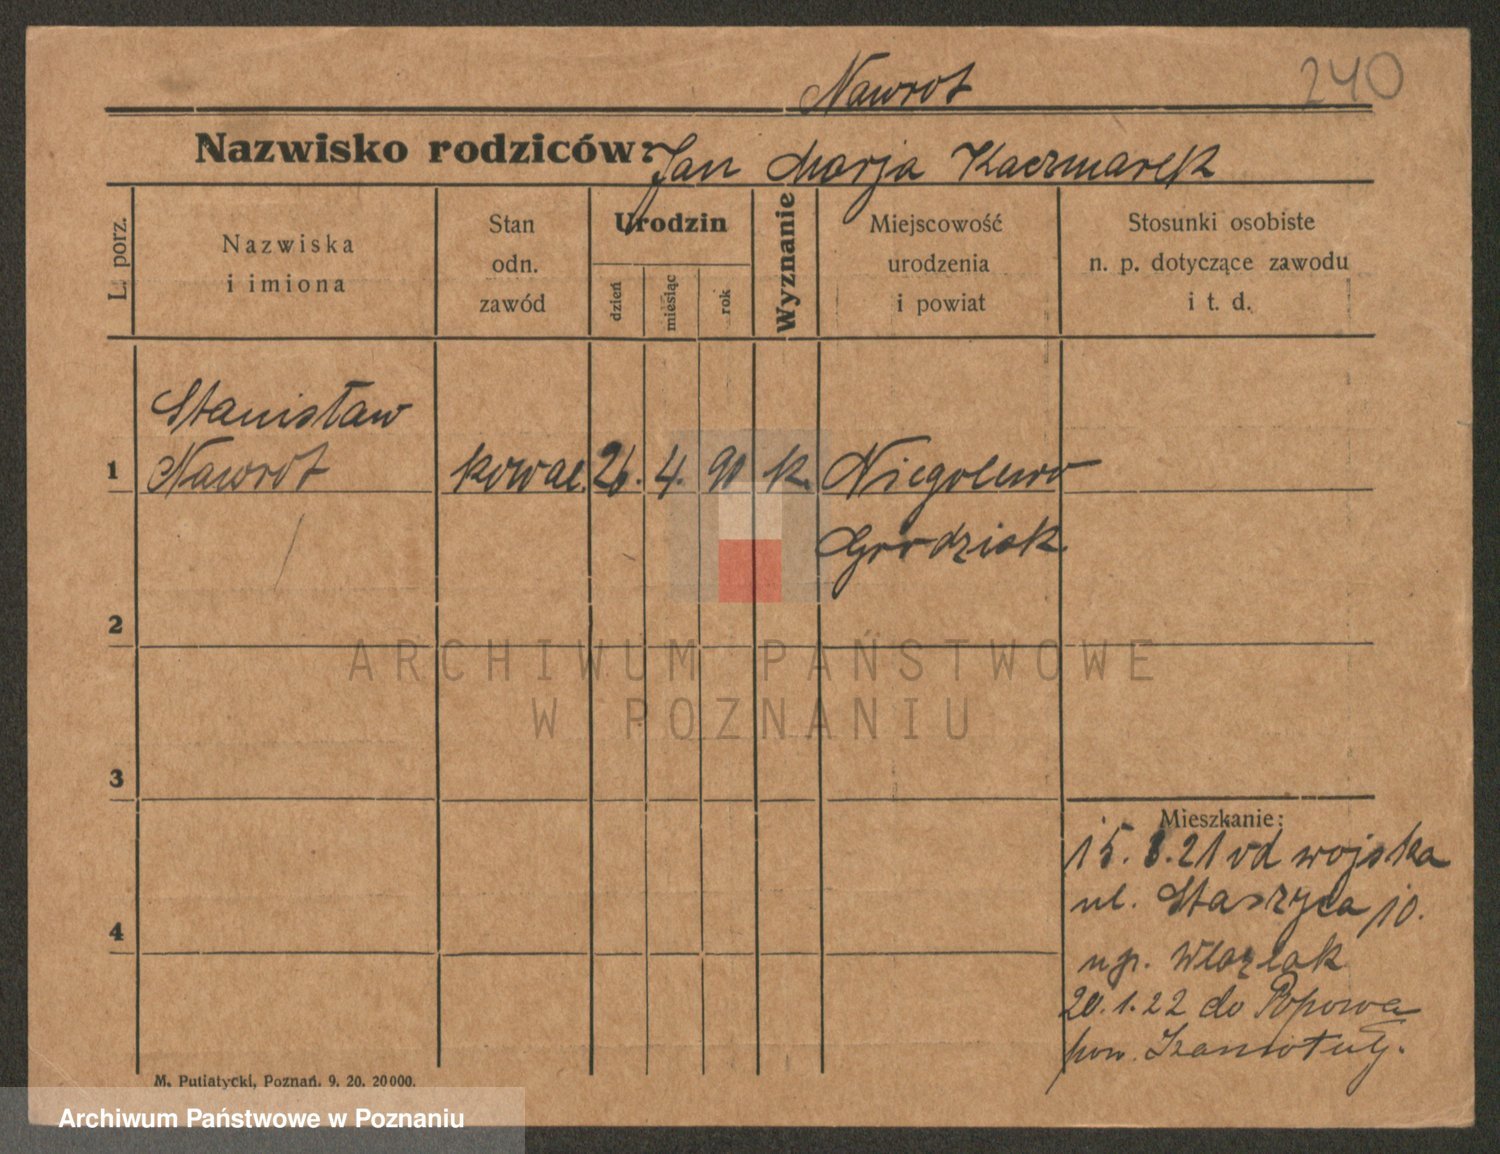 Nawrot
240
Nazwisko rodziców: Jan Marja Kaczmarek
L. porz.
Nazwiska
i imiona
Stan
odn.
zawód
Urodzin
dzień
miesiąc
rok
Wyznanie
Miejscowość
urodzenia
i powiat
Stosunki osobiste
n. p. dotyczące zawodu
i t. d.
Stanisław
1 Nawrot kowal. 26. 4. 90 k. Niegolewo
Grodzisk
2
ARCHIWUM PAŃSTWOWE
W POZNANIU
3
Mieszkanie:
15. 8. 21 od wojska
ul. Staszyca 10.
4
np. Wlaźlak
20.1.22 do Popowa
pow. Szamotuły.
M. Putiatycki, Poznań. 9. 20. 20000.
Archiwum Państwowe w Poznaniu